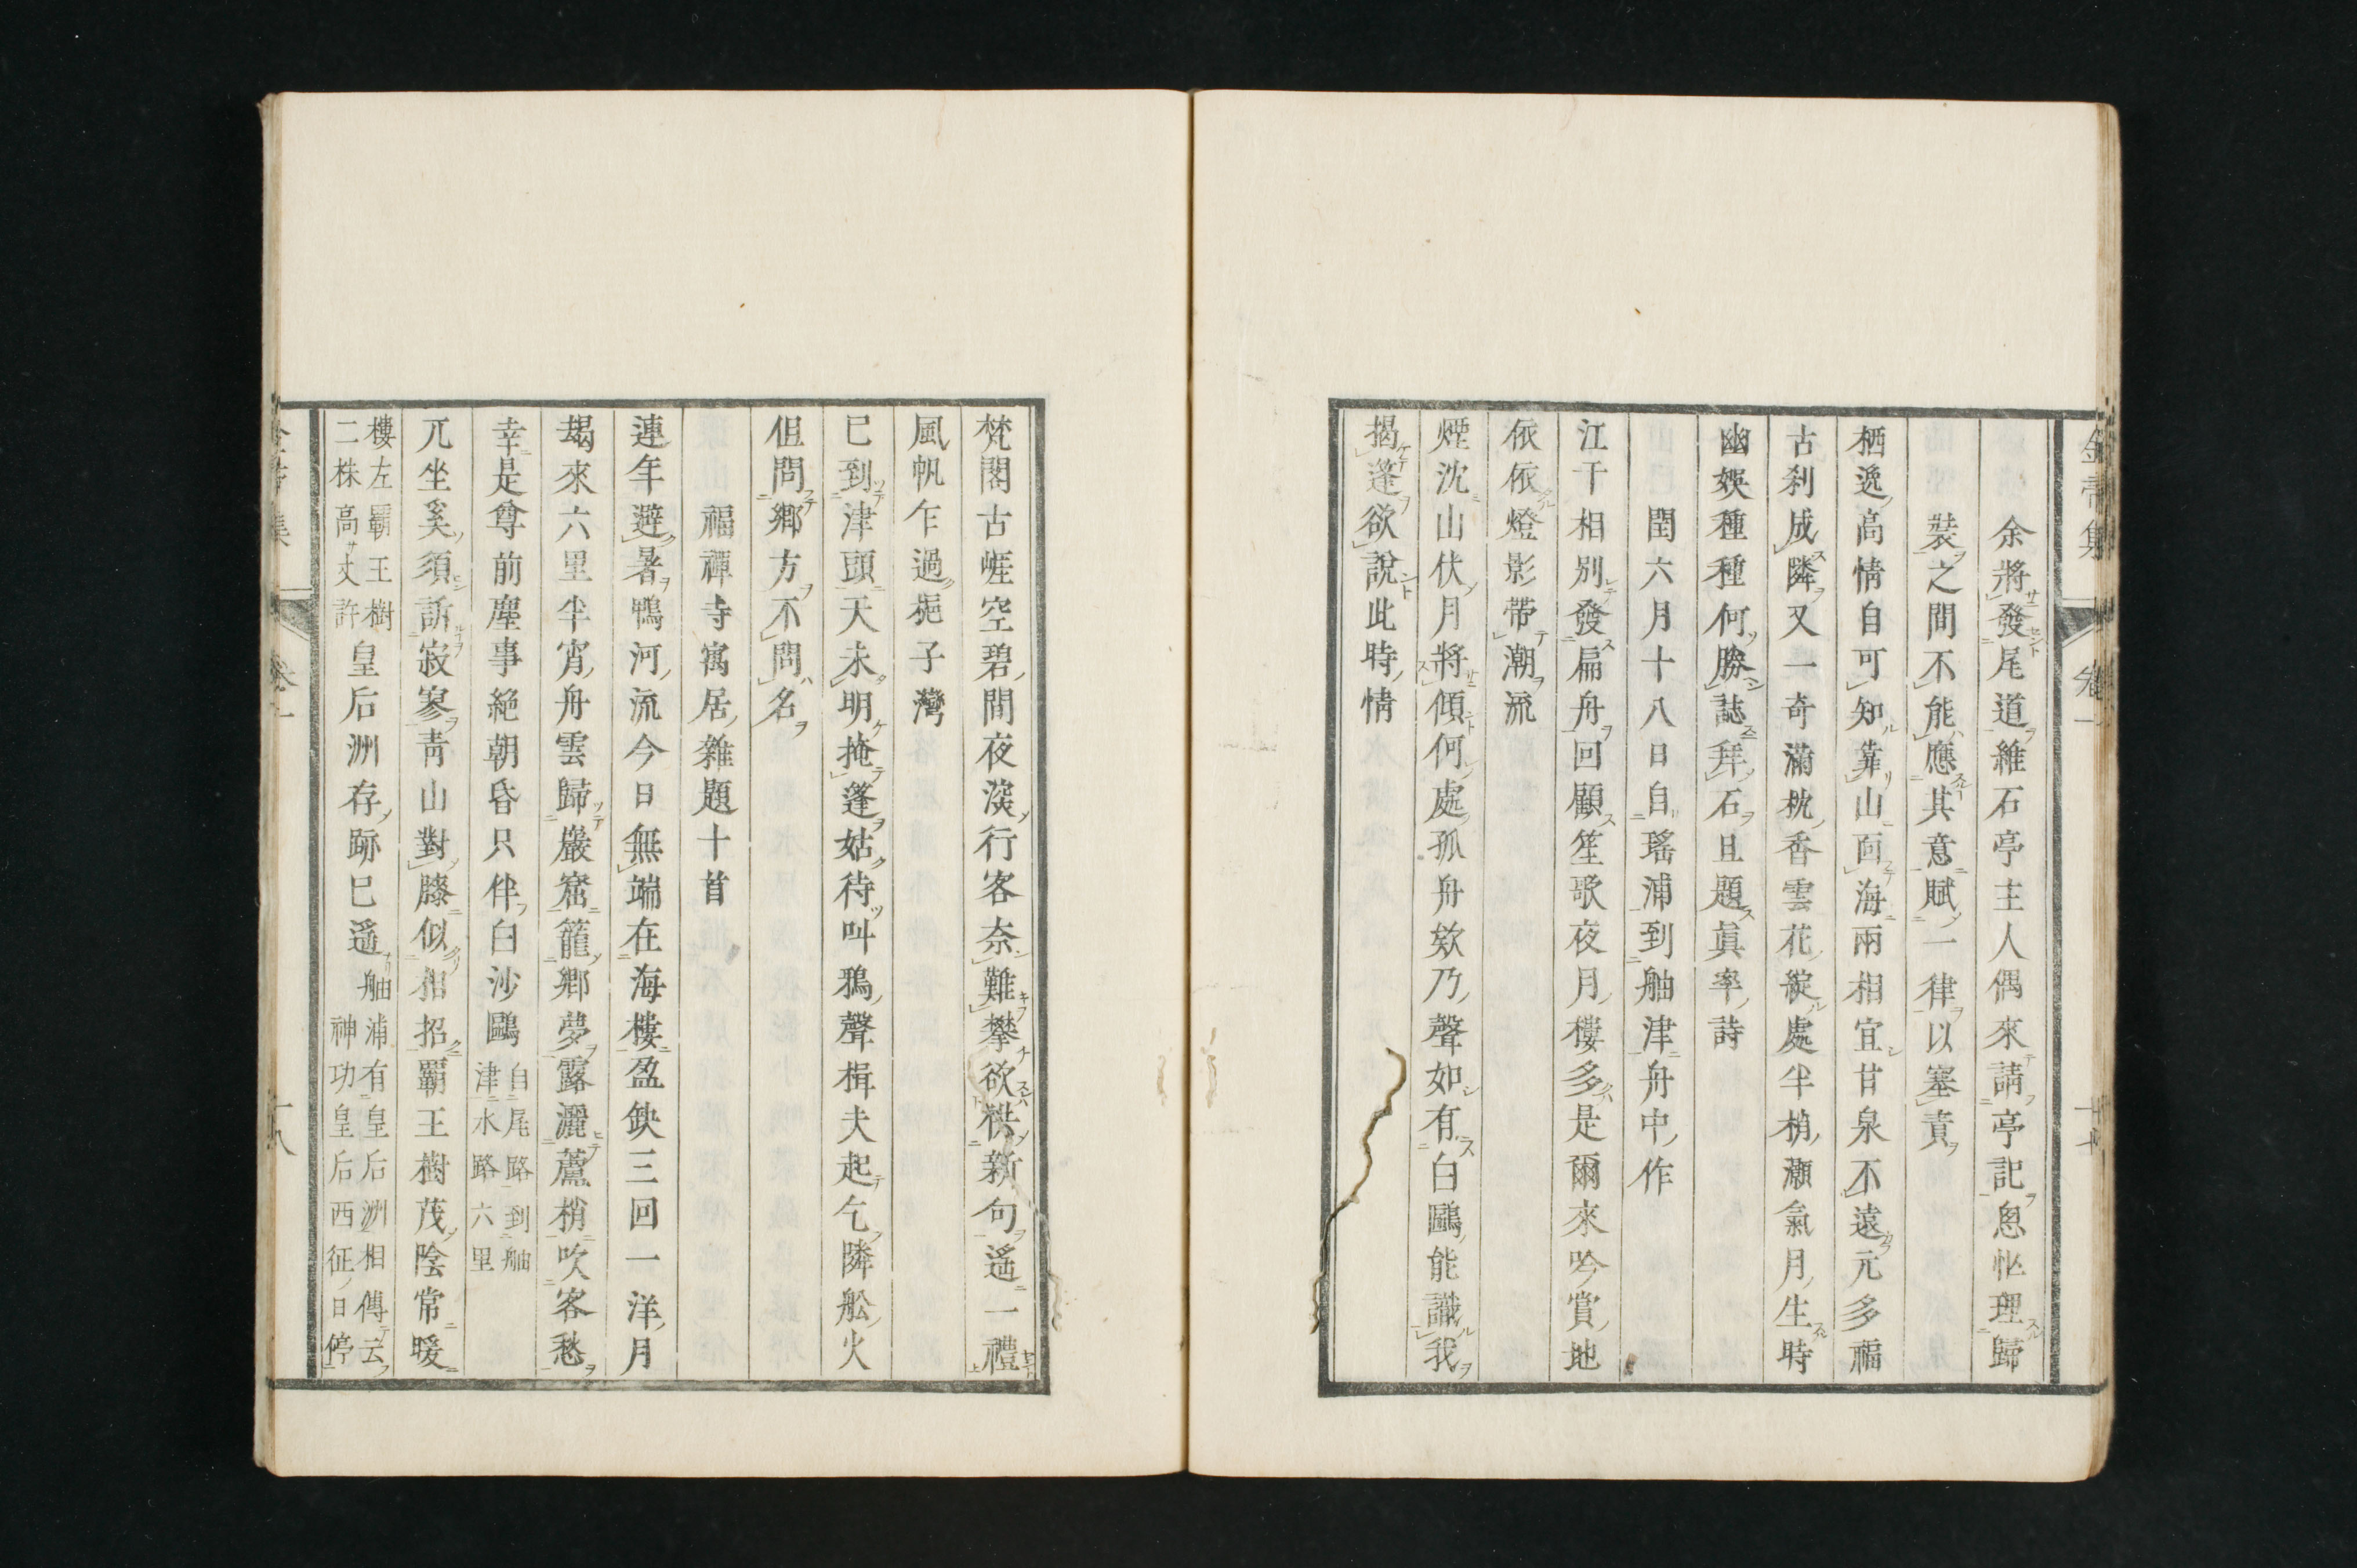 余將發尾道維石亭主人偶來請亭記怱怱理歸
裝之間不能應其意賦一律以塞責
栖逸高情自可知靠山面海兩相宜甘泉不遠元多福
古刹成隣又一奇滿枕香雲花綻處半梢灝氣月生時
幽娛種種何勝誌拜石且題眞率詩
閏六月十八日自瑤浦到舳津舟中作
江干相別發扁舟回顧笙歌夜月樓多是爾來吟賞地
依依燈影帶潮流
煙沈山伏月將傾何處孤舟欸乃聲如有白鷗能識我
揭蓬欲說此時情
梵閣古崕空碧間夜深行客奈難攀欲裁新句遥一禮
風帆乍過梔子灣
已到津頭天未明掩蓬姑待叫鴉聲楫夫起乞隣舩火
但問鄉方不問名
福禪寺寓居雜題十首
連年避暑鴨河流今日無端在海樓盈缺三回一洋月
朅來六里半宵舟雲歸巖窟籠鄉夢露灑蘆梢吹客愁
幸是尊前塵事絕朝昏只伴白沙鷗 自尾路到舳津水路六里
兀坐奚須訴寂寥靑山對膝似相招覇王樹茂陰常暖
樓左覇王樹二株高サ丈許 皇后洲存跡已遥 舳浦有皇后洲相傳云神功皇后西征日停